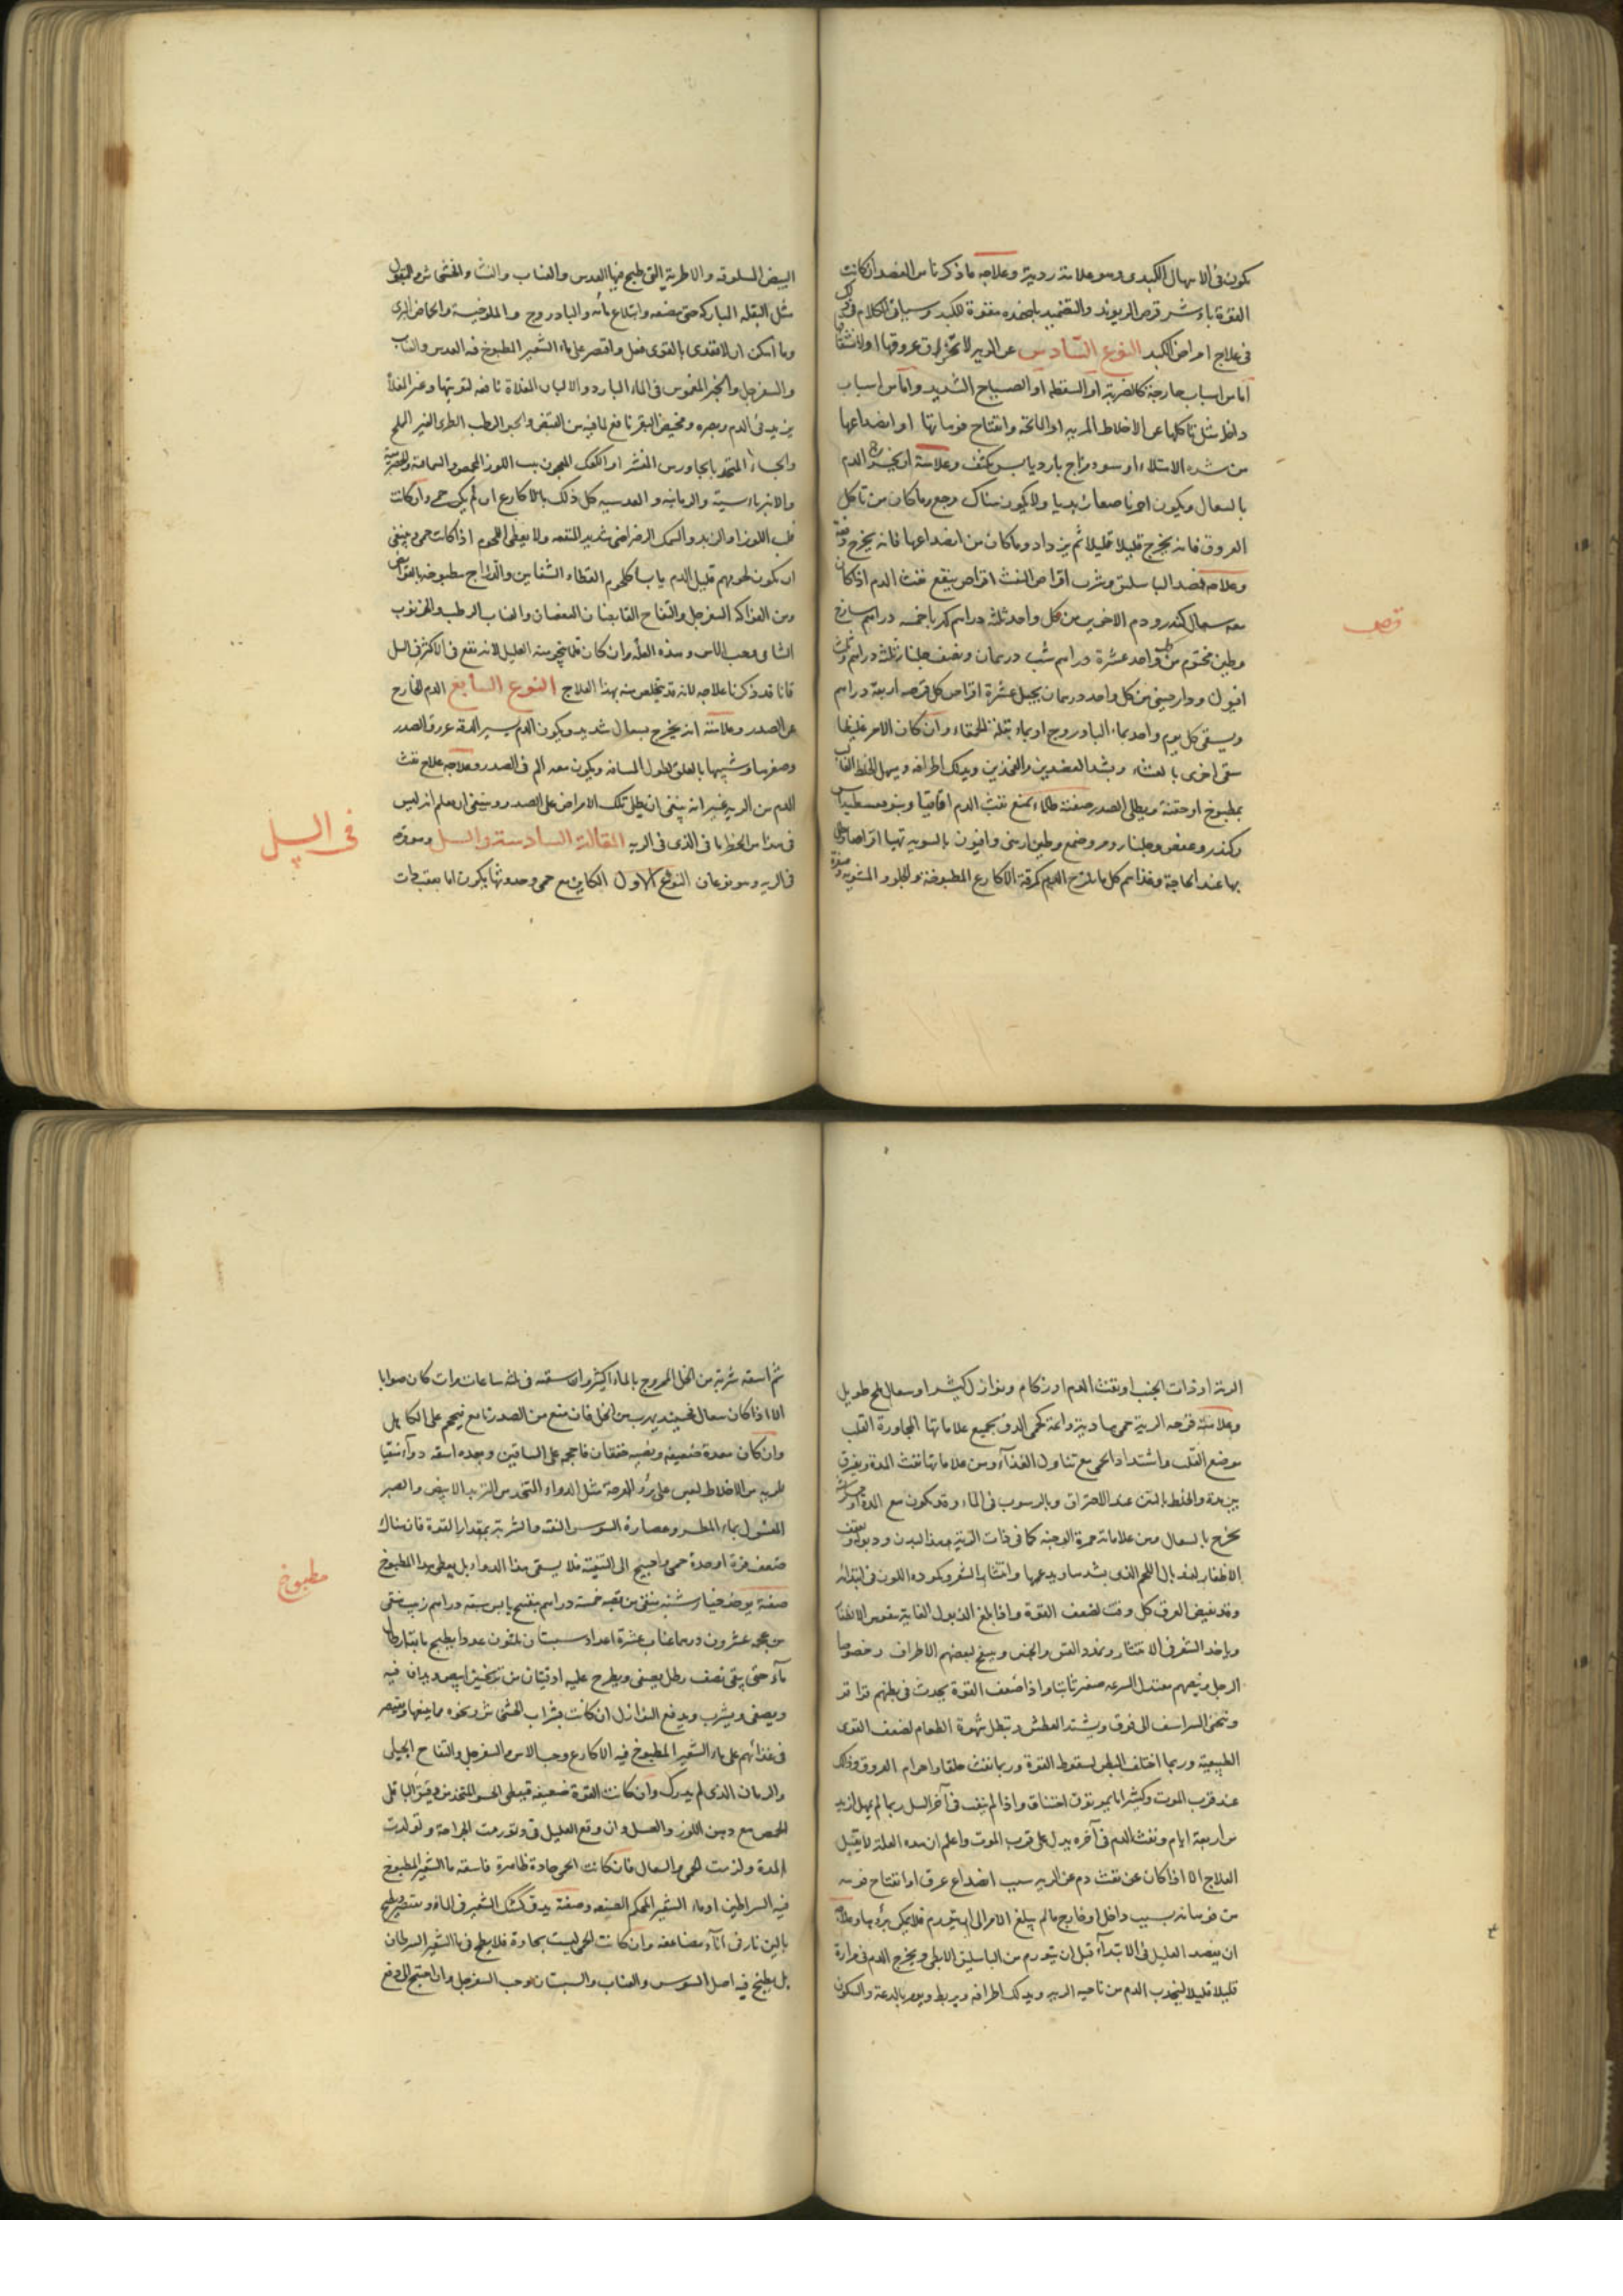 يكون فى الاسهال الكبدى وهو علامة ردية وعلاجه ما ذكرنا من الفصد ان كانت
القوة وشرب قرص الريوند والتضميد باضمدة مقوية للكبد وسياتى الكلام
فى علاج امراض الكبد النوع السادس عن الرية لانخراق عروقها او لانشقا
اما من اسباب خارجة كالضربة او السقطة او الصياح الشديد واما من اسباب
داخلة مثل تاكلها عن الاخلاط المرية او المالحة وانفتاح فوهاتها او انصداعها
من شدة الامتلاء او سوء مزاج بارد يابس مكثف وعلامته ان يخرج الدم
بالسعال ويكون احمر ناصعا زبديا ولا يكون هناك وجع وما كان من تاكل
العروق فانه يخرج قليلا قليلا ثم يزداد وما كان من انصداعها فانه يخرج دفعة
وعلاجه فصد الباسليق وشرب اقراص النفث اقراص ينفع نفث الدم اذا كان
معه سعال كندر ودم الاخوين من كل واحد ثلثة دراهم كهربا خمسة دراهم
وطين مختوم من كل واحد عشرة دراهم شب درهمان ونصف جلنار ثلثة دراهم
افيون ودارصينى من كل واحد درهمان يجعل عشرة اقراص كل قرصه اربعة دراهم
ويسقى كل يوم واحد بماء البادروج او بماء بقلة الحمقاء وان كان الامر غليظا
سقى اخرى بالعشاء ويشد العضدين والفخذين ويدلك اطرافه ويسهل الخلط الغالب
بمطبوخ او حقنة ويطلى الصدر صفة طلاء يمنع نفث الدم اقاقيا
وكندر وعفص وجلنار ومر وصمغ وطين ارمنى وافيون بالسوية تهيا اقراصا
بها عند الحاجة وغذاهم كل ما يلزج الدم كمرقة الاكارع المطبوخة والجلود المشوية
قرص
البيض المسلوقه والاطرية التى طبخ فيها العدس والعناب والنشا والخشخاش
مثل البقلة المباركة حتى مضغه وابتلاع مائه والبادروج والملوخية والحماض البرى
وما امكن ان لا تغتذى بالقوى فعل واقتصر على ماء الشعير المطبوخ فيه العدس والعناب
والسفرجل والخبز المغموس فى الماء البارد والالبان المغلاة نافعه لتغريتها وغير المغلا
يزيد فى الدم ويضره ومخيض البقر نافع لما فيه من القبض والجبن الرطب الطرى الغير المملح
والحساء المتخذ بالجاورس المقشر او الكعك المعجون بلب اللوز المحمص والسماقية
والانبرباريسية والرمانيه والعدسيه كل ذلك بالاكارع ان لم يكن حمى وان كانت
فلب اللوز او الزبد والسمك الرضراضى شديد المنفعه ولا يعطى اللحوم اذا كانت حمى وينبغى
ان يكون لحومهم قليل الدم يابسا كلحوم القطا والشفانين والدراج مطبوخه بالقوابض
ومن الفواكه السفرجل والتفاح القابضان العفصان والعناب الرطب والخرنوب
الشامى وحب الاس وهذه العلة وان كان قلما ينجو منه العليل لانه يقع فى الاكثر فى السل
فانا قد ذكرنا علاجه لانه قد يتخلص منه بهذا العلاج النوع السابع الدم الخارج
عن الصدر وعلامته انه يخرج بسعال شديد ويكون الدم يسير لدقة عروق الصدر
وصغرها وشبيها بالعلق لطول المسافه ويكون معه الم فى الصدر وعلاجه علاج نفث
الدم من الرية غير انه ينبغى ان يطلى تلك الاقراص على الصدر وينبغى ان يعلم انه ليس
فى هذا من الخطر ما فى الذى فى الريه المقالة السادسة والسل وهو قرحة
فى الريه وهو نوعان النوع الاول الكاين مع حمى وحدوثها يكون اما بعقب ذات
فى السل
الرية او ذات الجنب او نفث الدم او زكام ونوازل كثيرة او سعال ملح طويل
وعلامة قرحة الرية حمى هادية دائمة كحمى الدق بجميع علاماتها لمجاورة القلب
موضع القلب واشتداد الحمى مع تناول الغذاء ومن علاماتها نفث المدة ويفرق
بين مدة والخلط بالنتن عند الاحتراق وبالرسوب فى الماء وقد يكون مع المدة
يخرج بالسعال ومن علاماته حمرة الوجنة كما فى ذات الرية وهذا البدن وذبوله
الاظفار لذوبان اللحم الذى يشدها ويدعمها وانتثار الشعر وكمودة اللون فى ابتدائه
وقد يفيض العرق كل وقت لضعف القوة واذا بلغ الذبول الغاية يتقوس الاظفار
وياخذ الشعر فى الانتثار وتمدد العنق والجبين وينتفخ لبعضهم الاطراف وخصوصا
الرجل ونبضهم معتدل السرعه صغير ثابتا واذا ضعف القوة يحدث فى بطنهم قراقر
وتنحنى الشراسيف الى فوق ويشتد العطش وتبطل شهوة الطعام لضعف القوى
الطبيعية وربما اختلف البطن لسقوط القوة وربما نفث حلقا واجرام العروق وذلك
عند قرب الموت وكثيرا ما يموتون اختناقا واذا لم ينفث فى آخر السل ربما لم يمهل ازيد
من اربعة ايام ونفث الدم فى آخره يدل على قرب الموت واعلم ان هذه العلة لا يقبل
العلاج الا اذا كان عن نفث دم عن الرية سبب انصداع عرق او انفتاح فوهة
من فوهاته بسبب داخل او خارج ما لم يبلغ الامر الى ان يتورم فلا يمكن برؤها
ان يفصد العليل فى الابتداء قبل ان يتورم من الباسليق الابطى ويخرج الدم فى مرارة
قليلا قليلا لينجذب الدم من ناحية الريه ويدلك اطرافه ويربط ويؤمر بالدعة والسكون
ثم اسقه شربة من الخل الممزوج بالماء اكثر وان سقته فى ثلثه ساعات مرات كان صوابا
الا اذا كان سعال فحينئذ يهرب من الخل فان منع من الصدر مانع فيحجم على الكاهل
وان كان معدة ضعيفة ويصيبه خفقان فاحجمه على الساقين وبعده اسقه دواء منقيا
للرية من الاخلاط ليعين على برؤ القرحة مثل الدواء المتخذ من التربد الابيض والصبر
المغسول بماء المطر وعصارة السوس النقيه والشربة بمقدار القوة فان هناك
ضعف قوة او حدة حمى واحتيج الى التنقية فلا يسقى هذا الدواء بل يعطى هذا المطبوخ
صفة يوخذ خيار شنبر منقى من قصبه خمسة دراهم بنفسج يابس ستة دراهم زبيب منقى
من عجمه عشرون درهما عناب عشرة اعداد سبستان ثلثون عددا يطبخ
ماء حتى يبقى نصف رطل يصفى ويطرح عليه اوقيتان من ترنجبين ابيض ويداف فيه
ويصفى ويشرب ويدفع النوازل ان كانت بشراب الخشخاش ونحوه مما يمنعها ويقتصر
فى غذائهم على ماء الشعير المطبوخ فيه الاكارع وحب الاس والسفرجل والتفاح الجبلى
والرمان الذى لم يدرك وان كانت القوة ضعيفة فيعطى الحسو المتخذ من دقيق الباقلى
الحمص مع دهن اللوز والعسل وان وقع العليل فى ورمت الجراحة وتولدت
المدة ولزمت الحمى والسعال فان كانت الحمى حادة ظاهرة فاسقه ماء الشعير المطبوخ
فيه السراطين او ماء الشعير المحكم الصنعه وصفته يدق كشك الشعير فى الماء ويعتصر ويطبخ
بالين نار فى آناء مضاعفه وان كانت الحمى ليست بحادة فلا يطبخ فى ماء الشعير السرطان
بل يطبخ فيه اصل السوس والعناب والسبستان وحب السفرجل وان احتيج الى دفع
مطبوخ